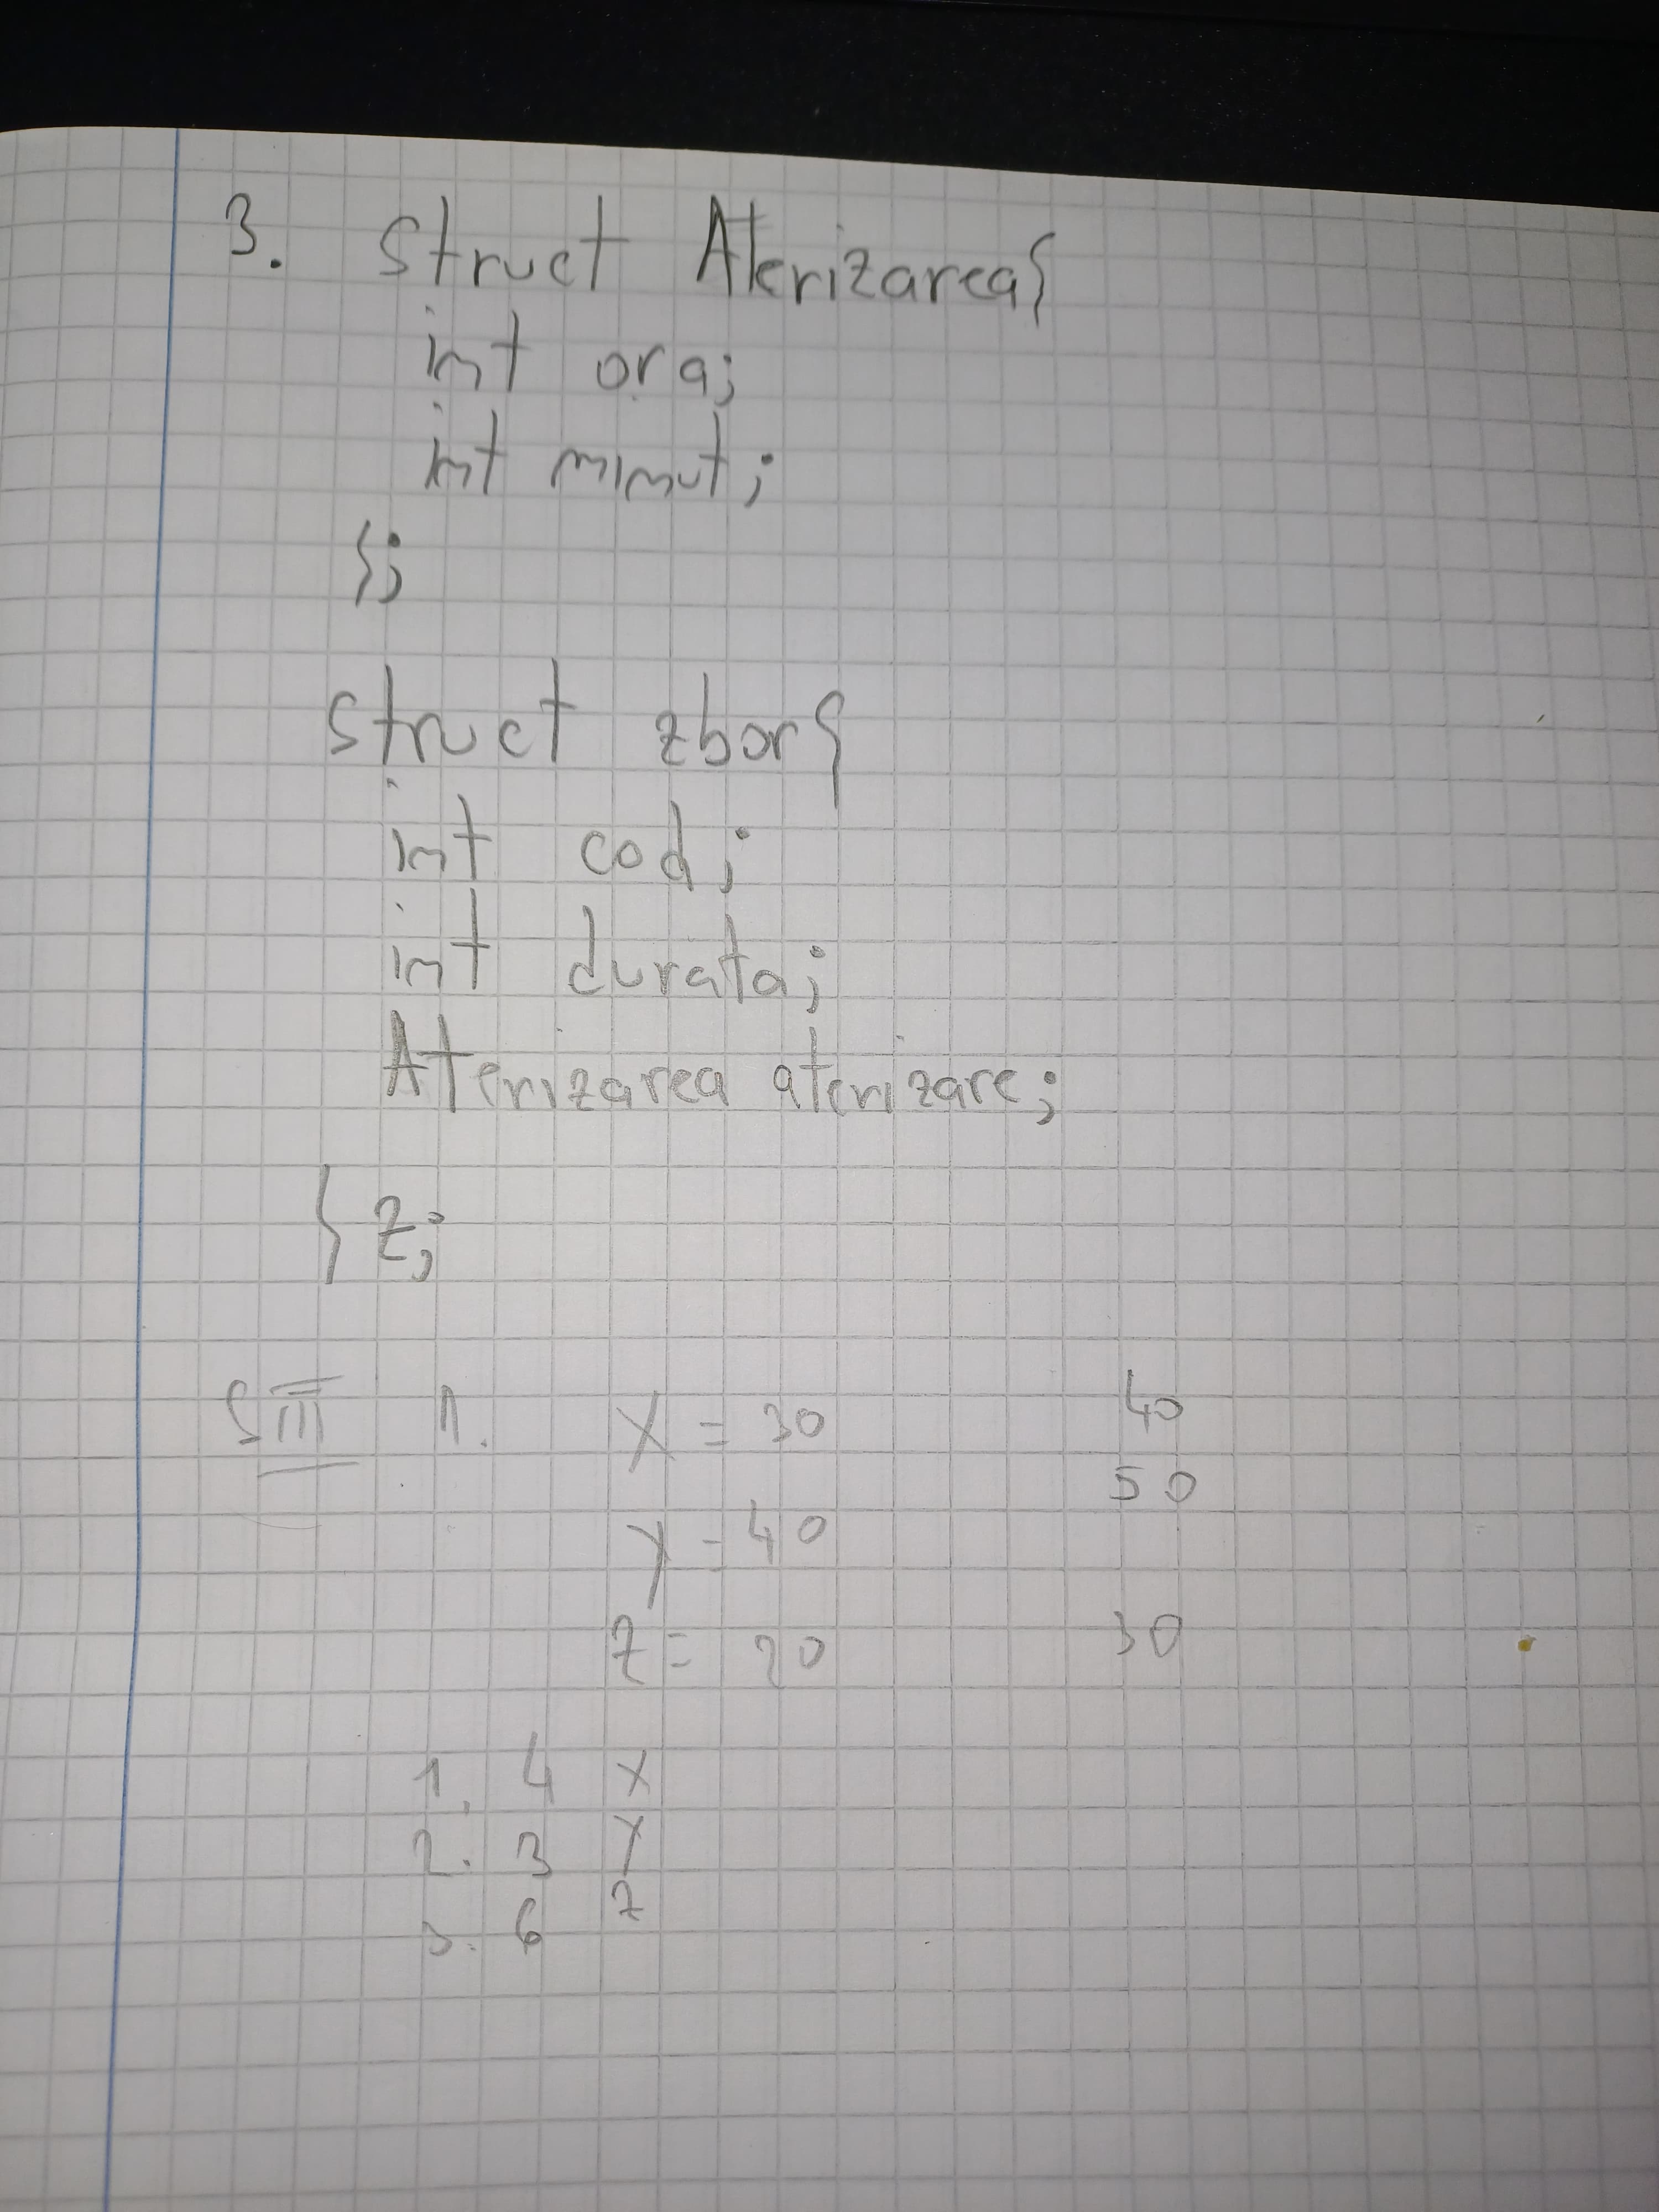 3. struct Aterizarea{
int ora;
int minut;
};
struct zbor{
int cod;
int durata;
Aterizarea aterizare;
} z;
SIII 1. X = 30 40
50
y = 40
z = 20 30
1. 4 X
2. 3 Y
3. 6 z